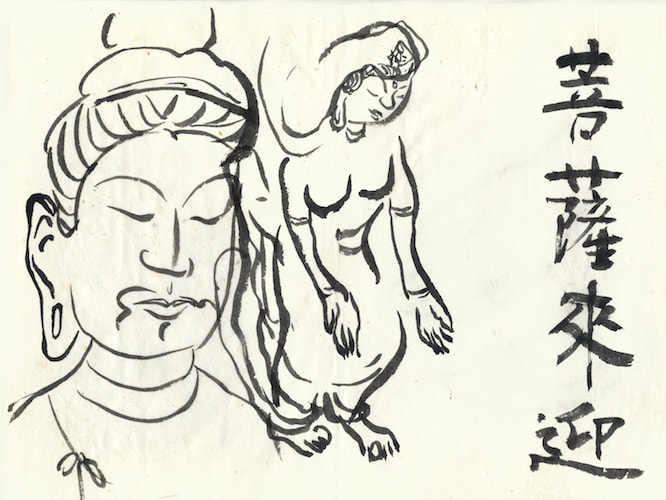 菩薩來迎